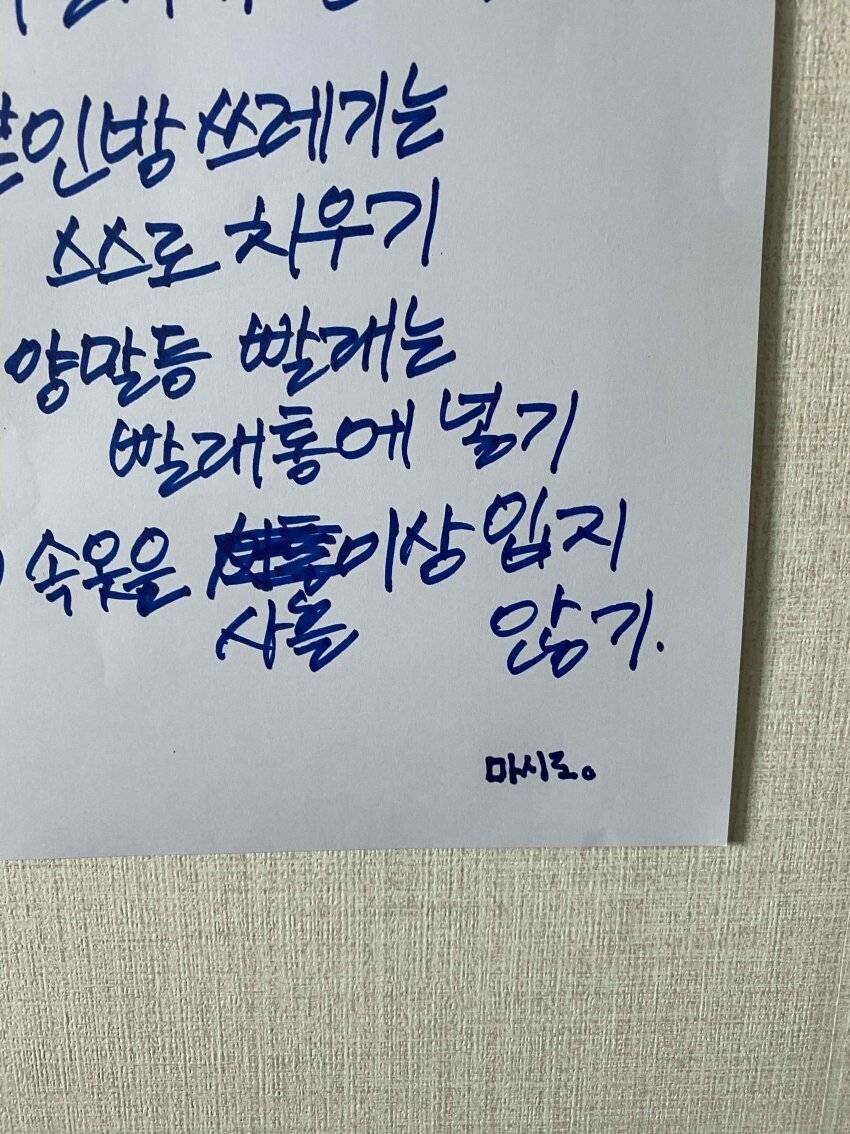 본인방 쓰레기는
스스로 치우기
양말등 빨래는
빨래통에 넣기
속옷을 이상 입지
사흘 않기.
마시로。